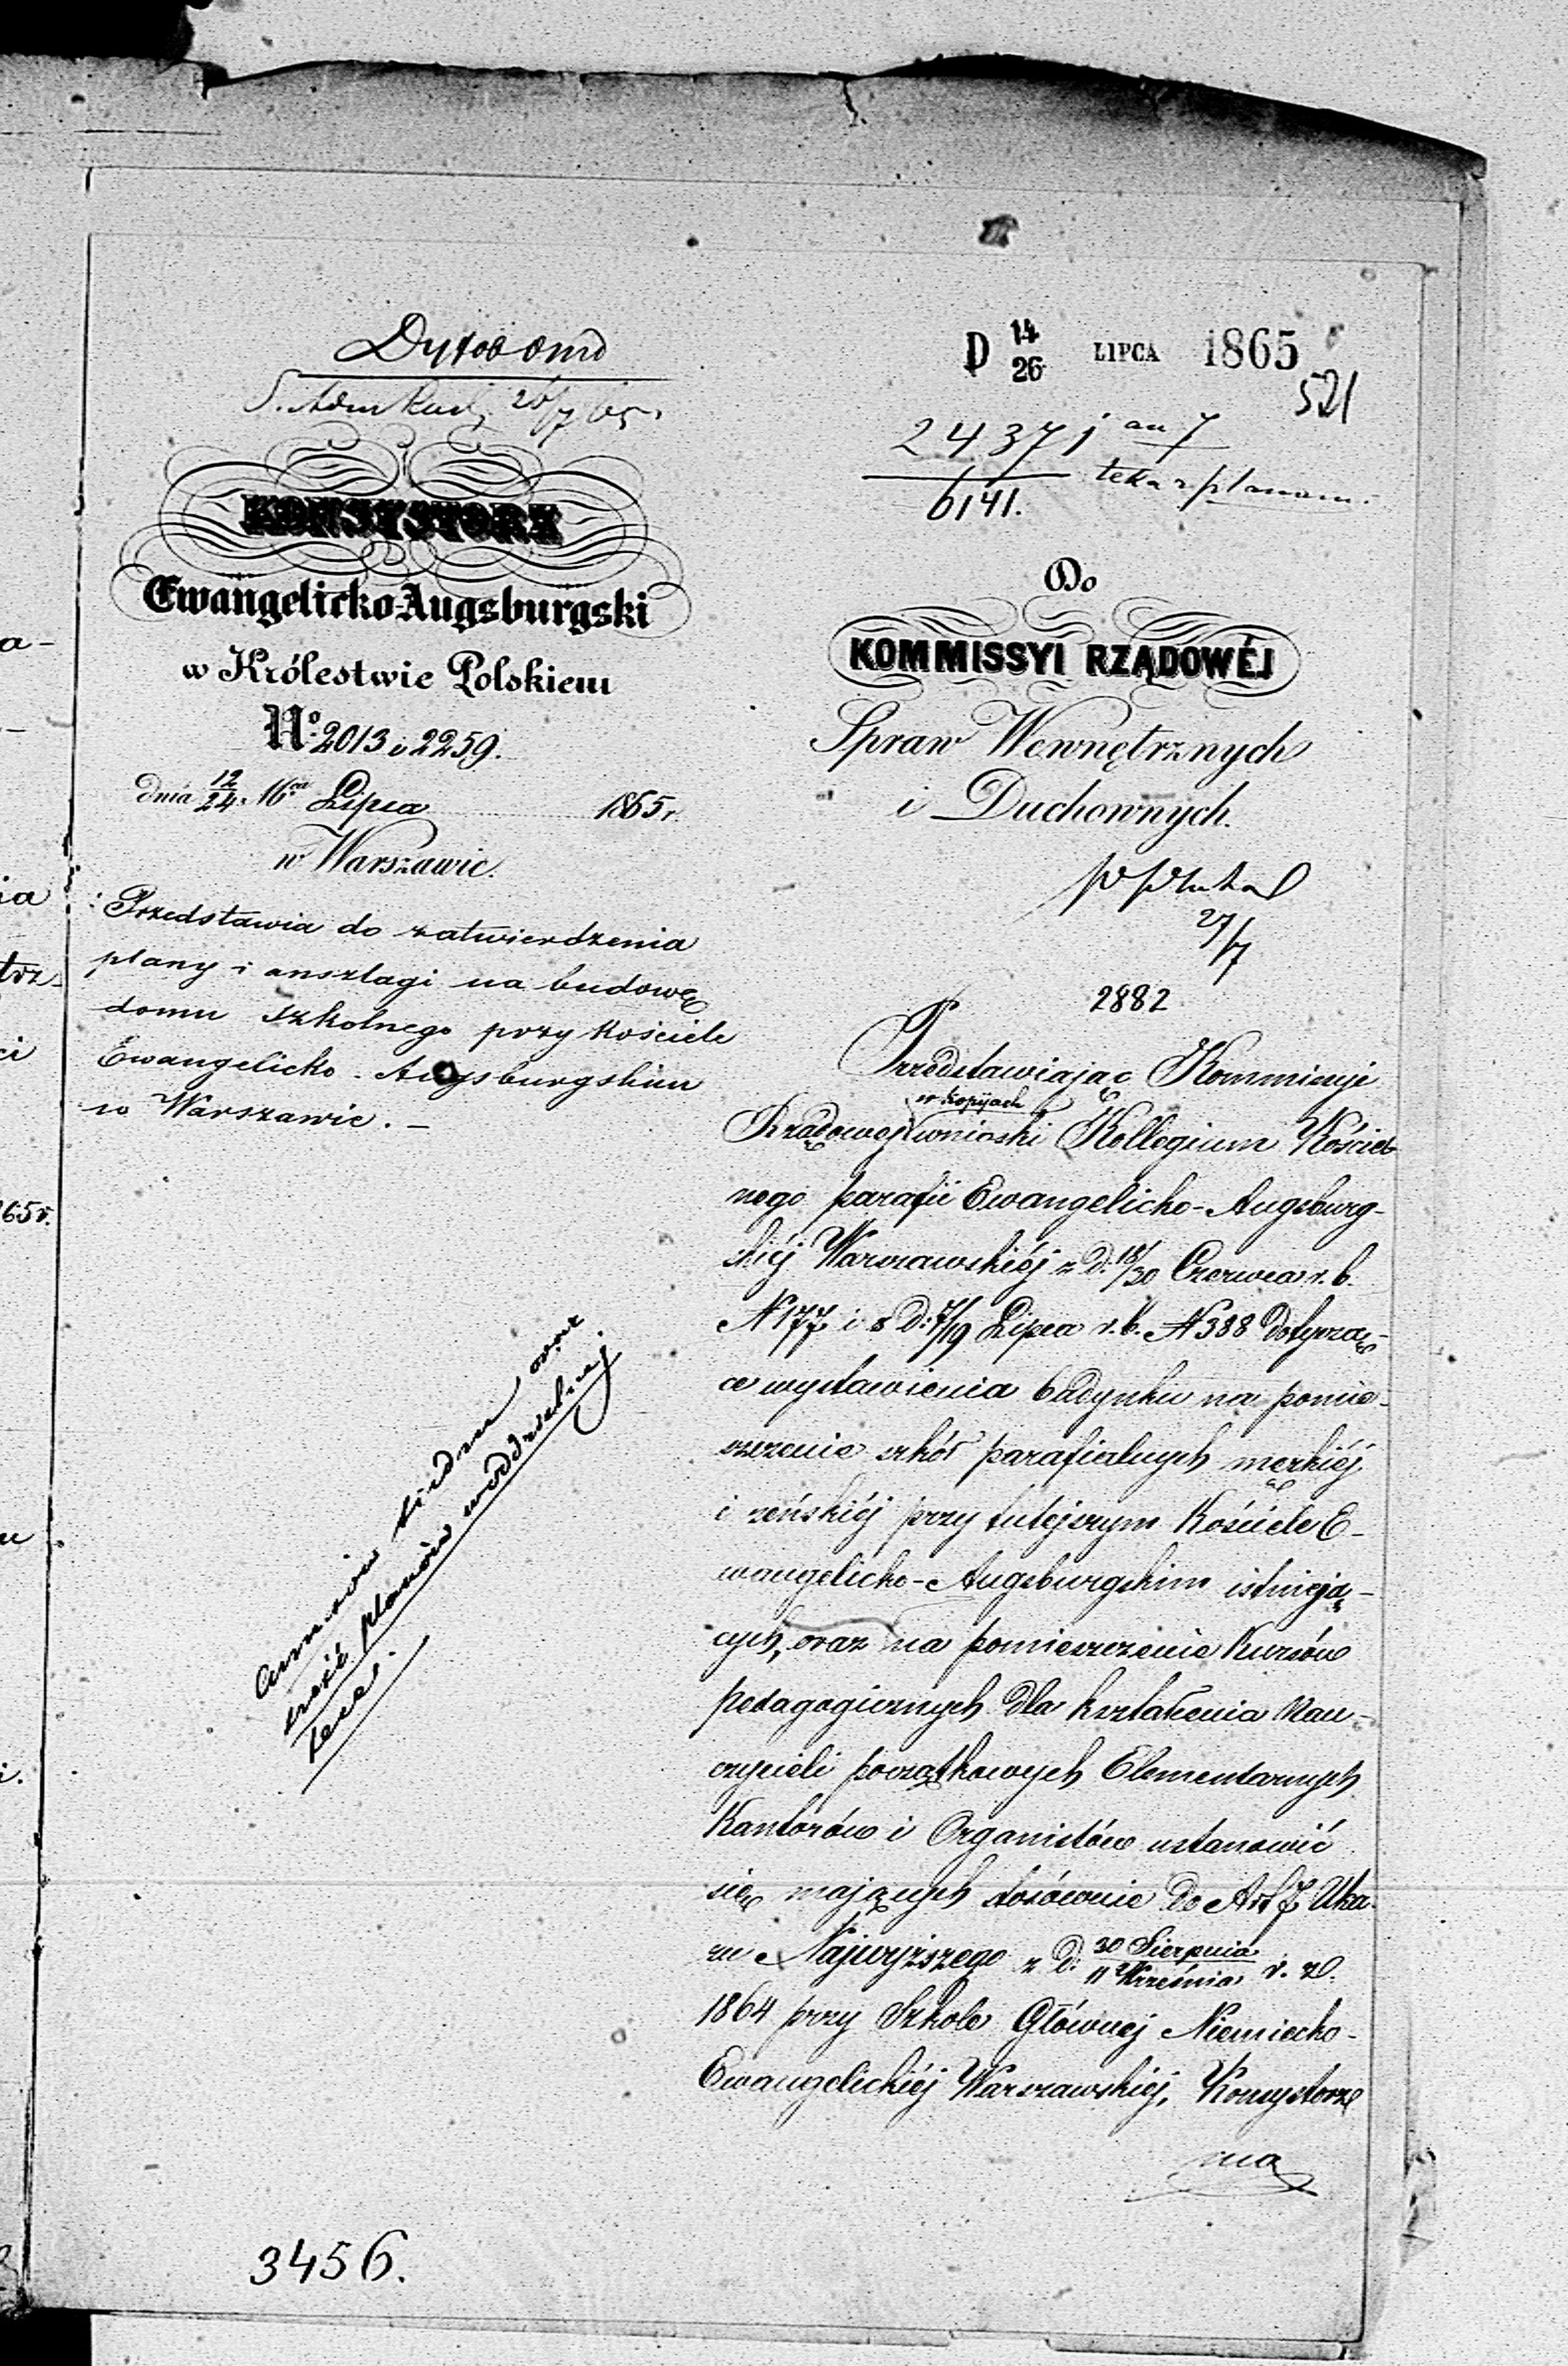 D 14/26 LIPCA 1865
521
24371 an 7
6141. teka z planami
KONSYSTORZ
Ewangelicko-Augsburgski
w Królestwie Polskiem
No. 2013 i 2259.
dnia 12/24 Lipca 1865 r.
w Warszawie.
Przedstawia do zatwierdzenia
plany i anszlagi na budowę
domu szkolnego przy Kościele
Ewangelicko-Augsburgskim
w Warszawie. —
planów w oddzielnej
tece.
3456.
Do
KOMMISSYI RZĄDOWÉJ
Spraw Wewnętrznych
i Duchownych.
27/7
2882
Przedstawiając Kommissyi
w kopijach
Rządowej wnioski Kollegium Kościel-
nego parafii Ewangelicko-Augsburg-
skiéj Warszawskiéj z D. 18/30 Czerwca r. b.
N 177 i z D: 7/19 Lipca r. b. N 388 dotyczą-
ce wystawienia budynku na pomie-
szczenie szkół parafialnych męzkiéj
i żeńskiéj przy tutejszym Kościele E-
wangelicko-Augsburgskim istnieją-
cych, oraz na pomieszczenie Kursów
pedagogicznych dla kształcenia Nau-
czycieli początkowych Elementarnych
Kantorów i Organistów ustanowić
się mających stosównie do Art 7 Uka-
zu Najwyższego z D. 30 Sierpnia / 11 Września r. z.
1864 przy Szkole Głównej Niemiecko-
Ewangelickiéj Warszawskiéj, Konsystorz
ma